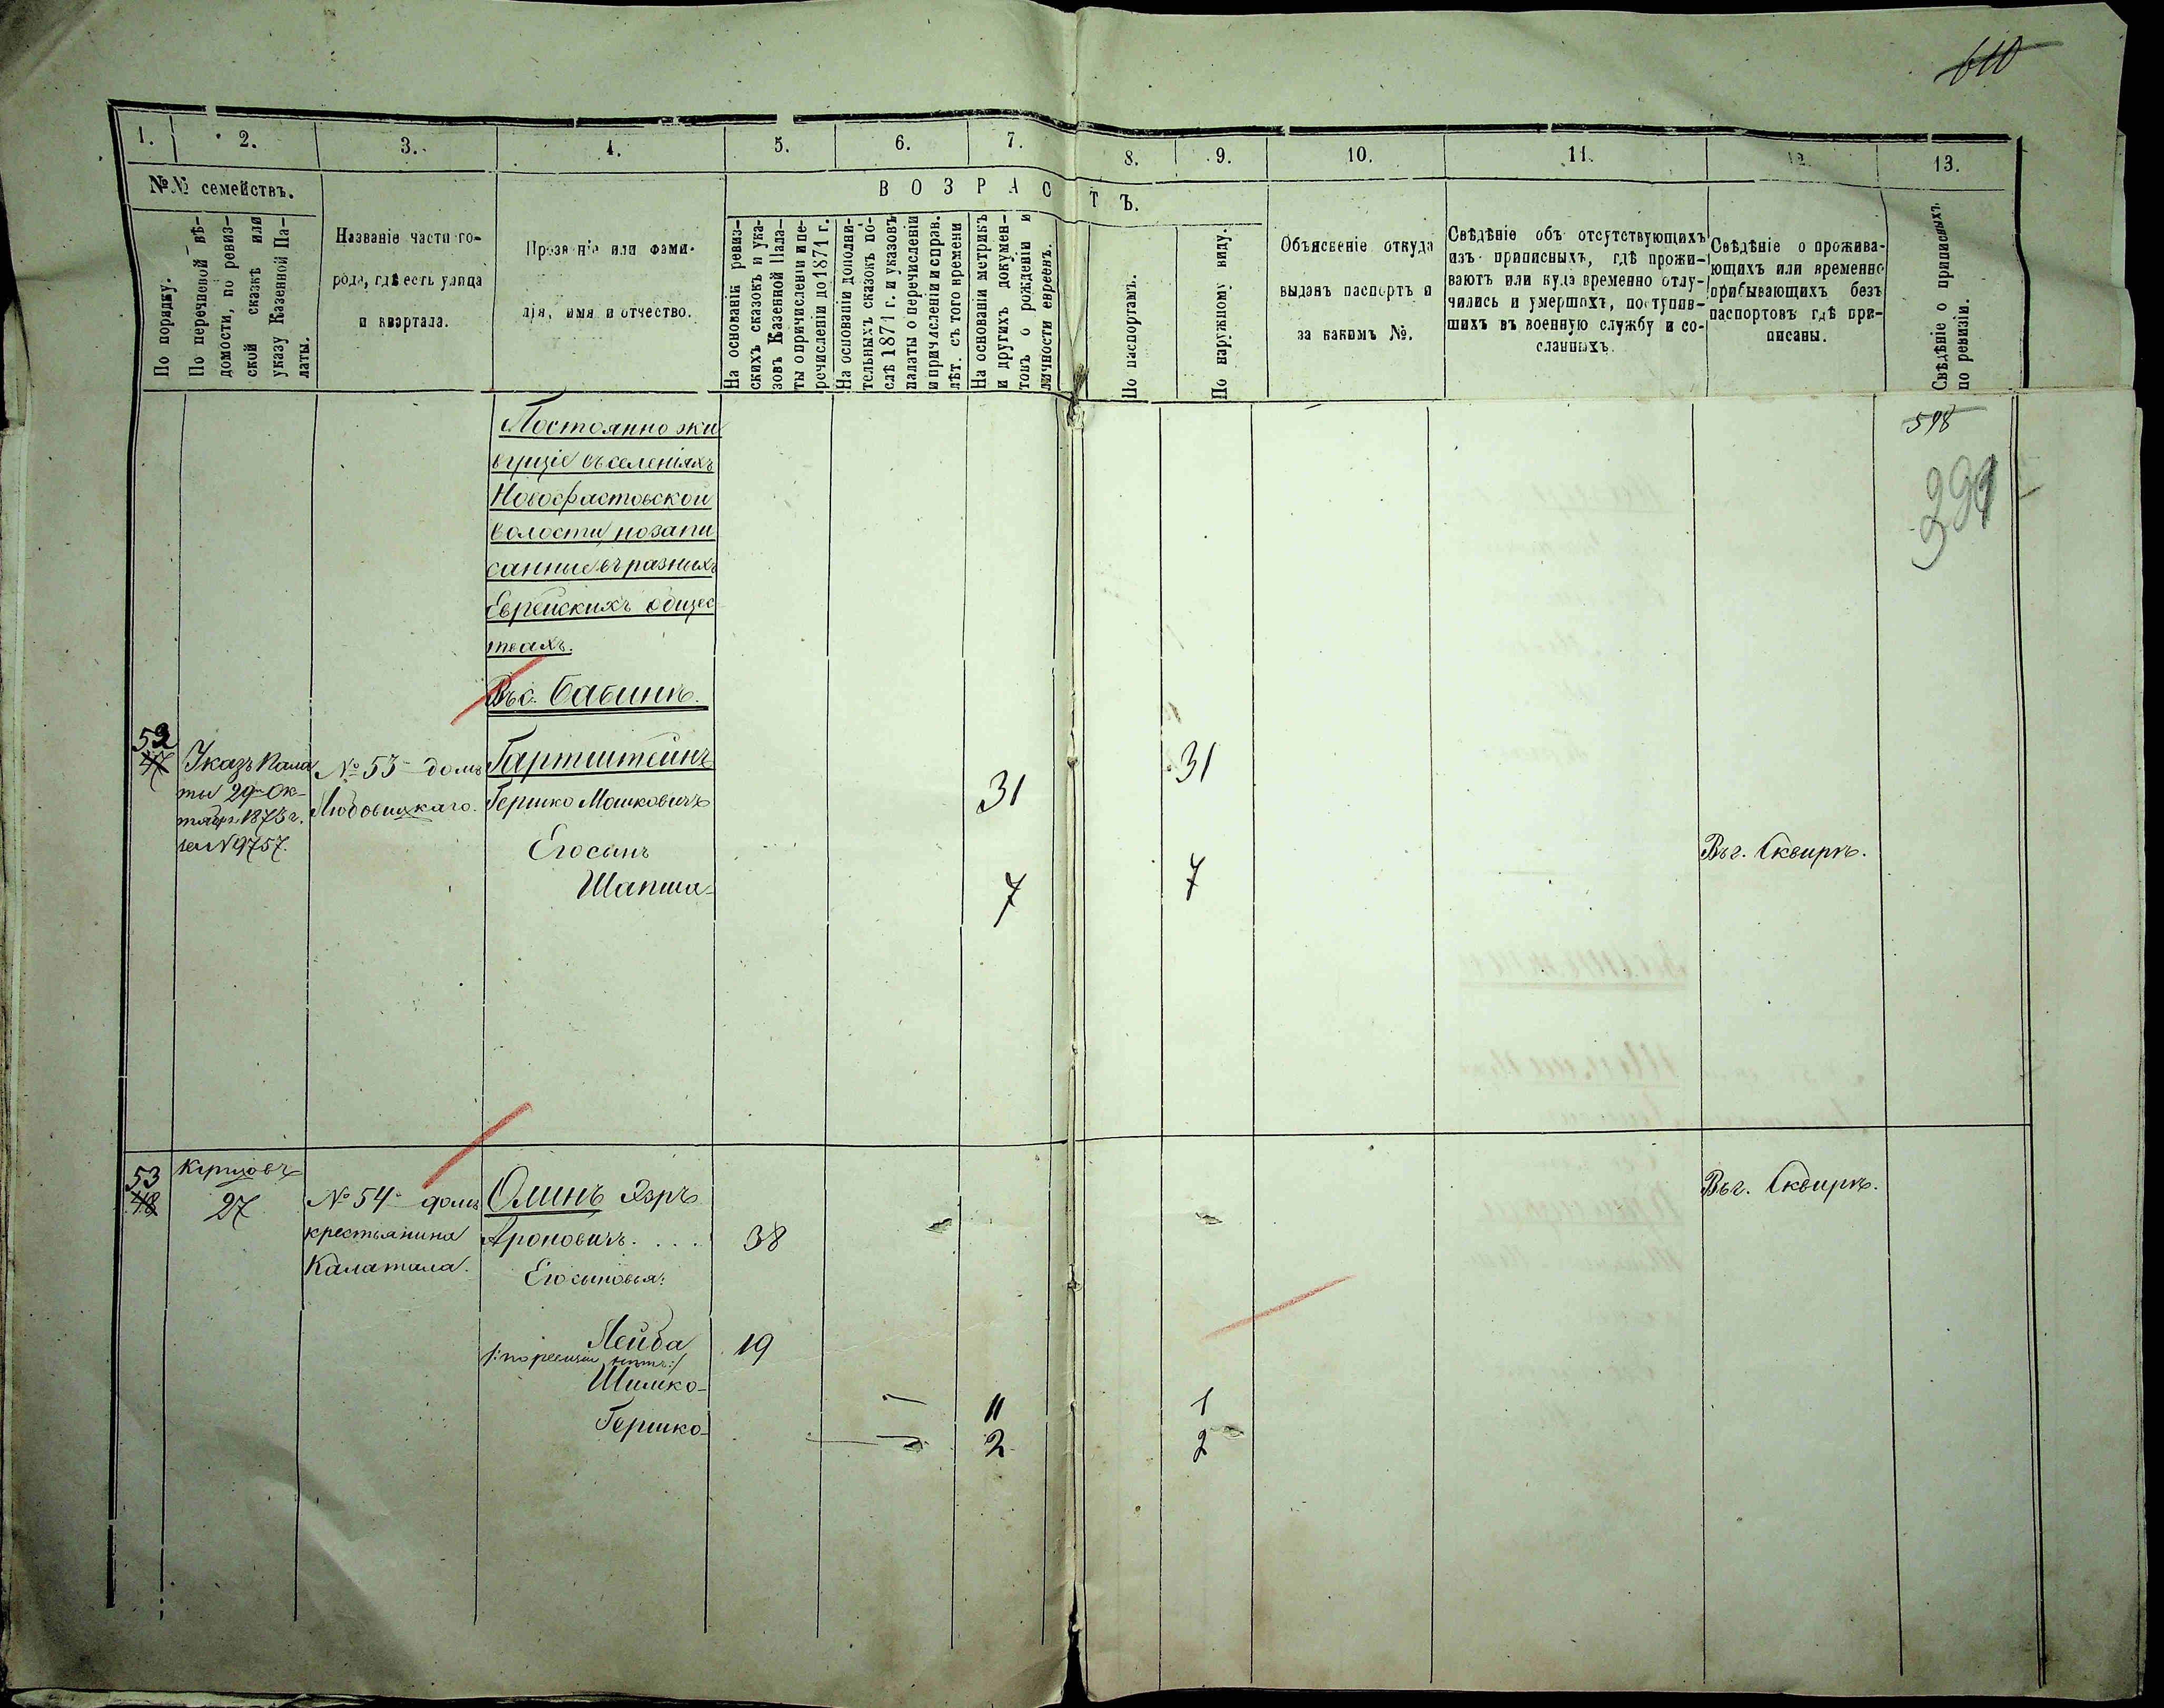 610
1. 2. 3. 4. 5. 6. 7. 8. 9. 10. 11. 12. 13.
№№ семействъ.
По порядку.
По перечневой вѣ-
домости, по ревиз-
ской сказкѣ или
указу Казенной Па-
латы.
Названіе части го-
рода, гдѣ есть улица
и квартала.
Прозваніе или фами-
лія, имя и отчество.
ВОЗРАСТЪ.
На основаніи ревиз-
скихъ сказокъ и ука-
зовъ Казенной Пала-
ты о причисленіи и пе-
речисленіи до 1871 г.
На основаніи дополни-
тельныхъ сказокъ по-
слѣ 1871 г. и указовъ
палаты о перечисленіи
и причисленіи и справ.
лѣт. съ того времени
На основаніи метрикъ
и другихъ докумен-
товъ о рожденіи и
личности евреевъ.
По паспортамъ.
По наружному виду.
Объясненіе откуда
выданъ паспортъ и
за какимъ №.
Свѣдѣніе объ отсутствующихъ
изъ приписныхъ, гдѣ прожи-
ваютъ или куда временно отлу-
чились и умершихъ, поступив-
шихъ въ военную службу и со-
сланныхъ.
Свѣдѣніе о прожива-
ющихъ или временно
прибывающихъ безъ
паспортовъ гдѣ при-
писаны.
Свѣдѣніе о приписныхъ
по ревизіи.
598
391
Постоянно жи
вущіе въ селеніяхъ
Новофастовской
волости но запи
санные въ разныхъ
Еврейскихъ общес
твахъ.
Въ с. Бабинѣ.
52
47
Указъ Пала
ты 29го Ок-
тября 1873 г.
за №9757.
№ 53 - домъ
Любовицкаго.
Гартштейнъ
Гершко Мошковичъ
31
31
Его сынъ
Шапша
7
7
Въ г. Сквирѣ.
53
48
Купцовъ
27
№ 54 - домъ
крестьянина
Калатала.
Олинъ Азръ
Ароновичъ. . . .
38
Въ г. Сквирѣ.
Его сыновья:
Лейба
19
/:по ревизіи нѣтъ:/
Шимко
11
1
Гершко
2
2